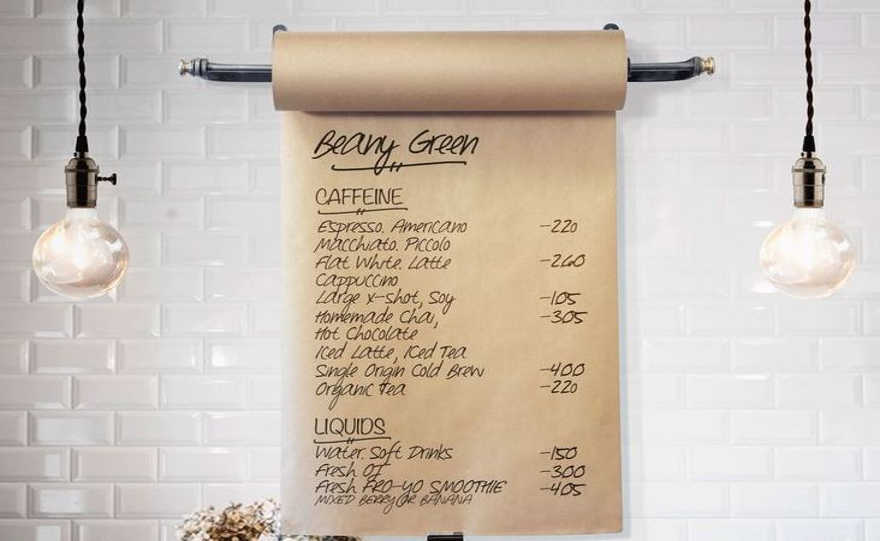 Beany Green
CAFFEINE
Espresso. Americano -220
Macchiato. Piccolo
Flat White. Latte -260
Cappuccino
Large x-shot, Soy -105
Homemade Chai, -305
Hot Chocolate
Iced Latte, Iced Tea
Single Origin Cold Brew -400
Organic Tea -220
LIQUIDS
Water. Soft Drinks -150
Fresh OJ -300
Fresh FRO-YO SMOOTHIE -405
MIXED BERRY OR BANANA